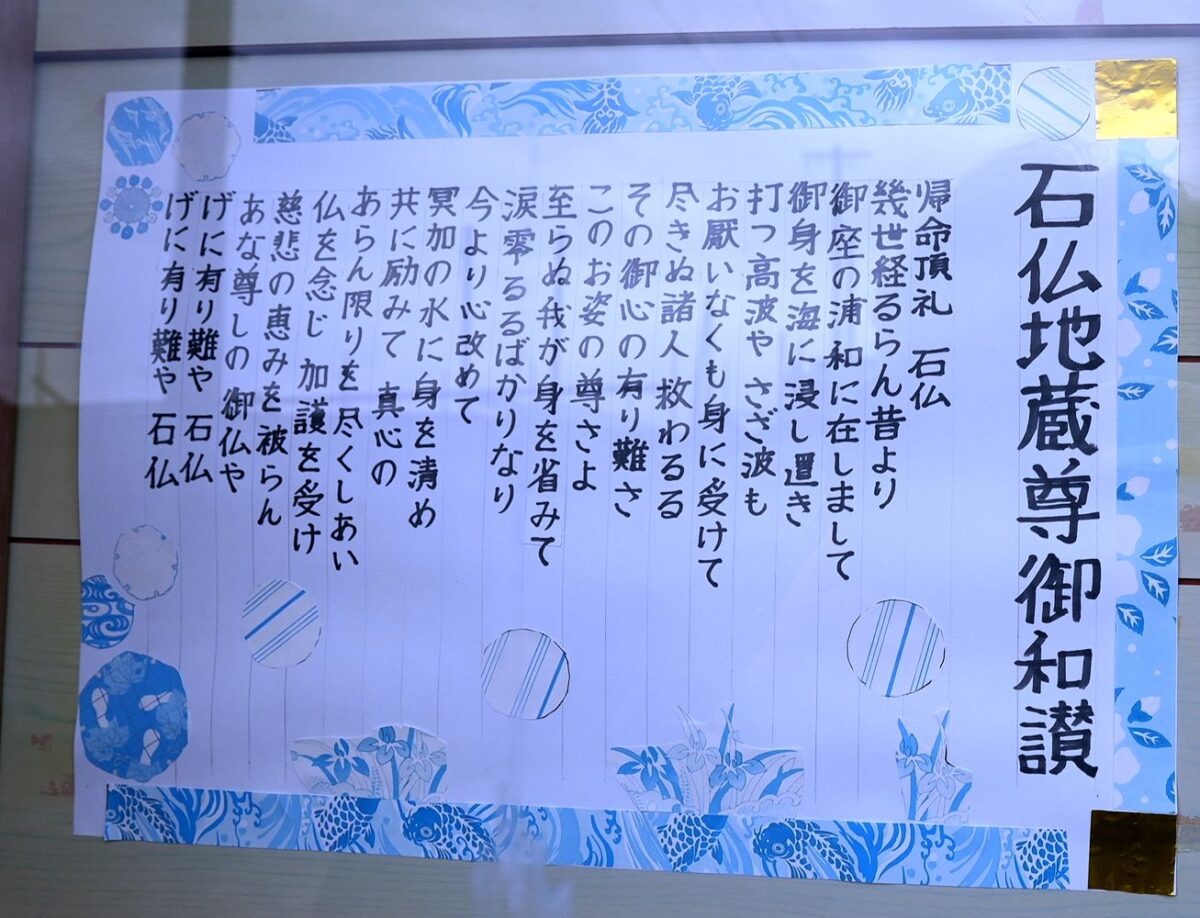 石仏地蔵尊御和讃
帰命頂礼 石仏
幾世経るらん昔より
御座の浦和に在しまして
御身を海に浸し置き
打つ高波や さざ波も
お厭いなくも身に受けて
尽きぬ諸人 救わるる
その御心の有り難さ
このお姿の尊さよ
至らぬ我が身を省みて
涙零るるばかりなり
今より心改めて
冥加の水に身を清め
共に励みて 真心の
あらん限りを尽くしあい
仏を念じ 加護を受け
慈悲の恵みを被らん
あな尊しの 御仏や
げに有り難や 石仏
げに有り難や 石仏